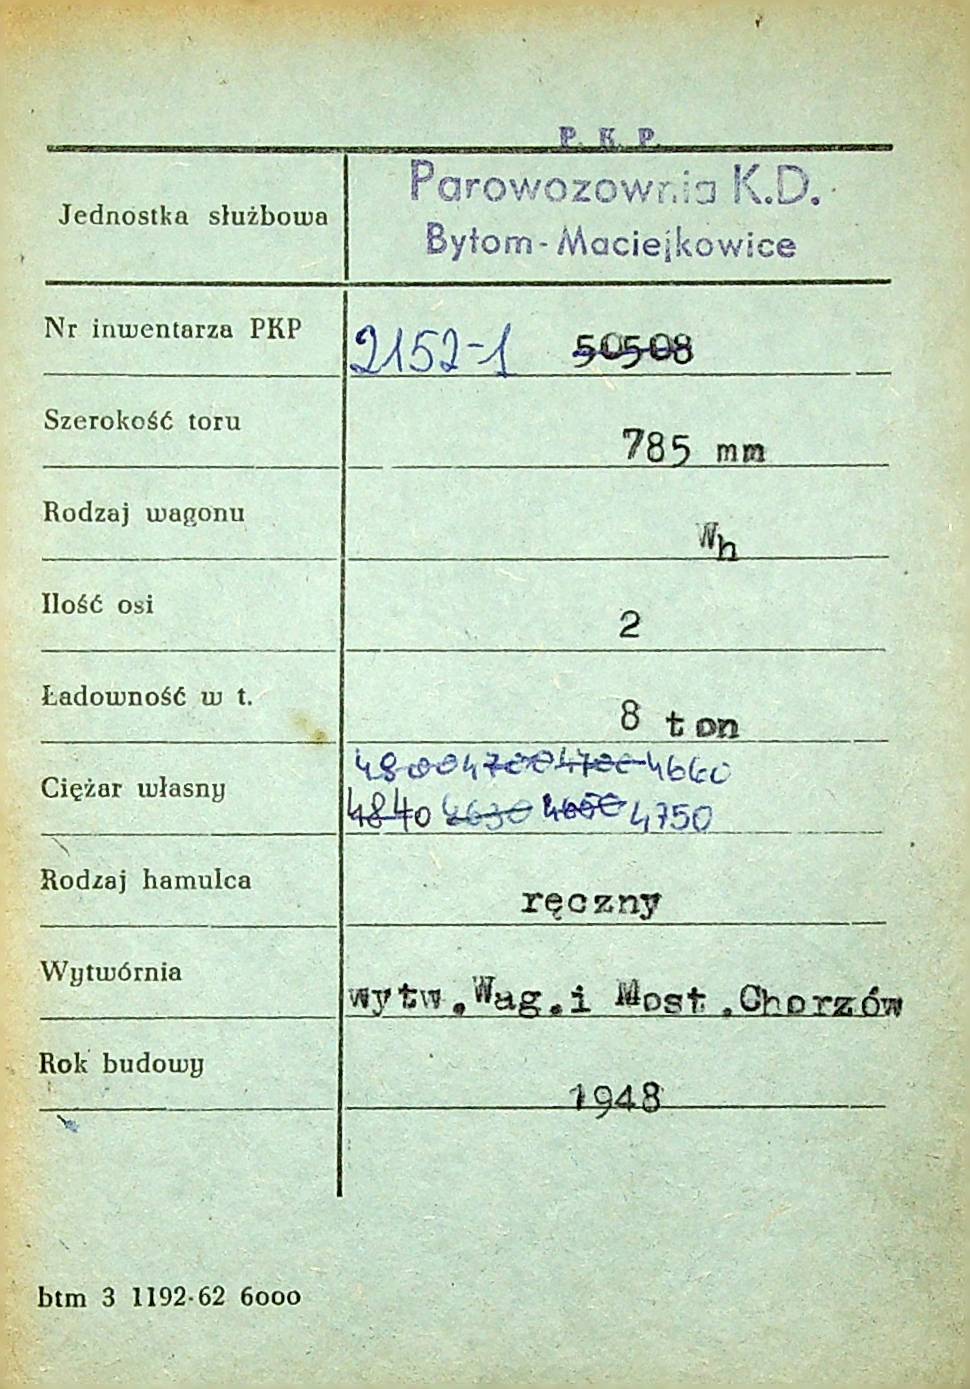 P. K. P.
Parowozownia K.D.
Jednostka służbowa
Bytom-Maciejkowice
Nr inwentarza PKP 2152-1 50508
Szerokość toru 785 mm
Rodzaj wagonu Wh
Ilość osi 2
Ładowność w t. 8 ton
4800 4700 4700 4660
Ciężar własny
4840 4630 4650 4750
Rodzaj hamulca ręczny
Wytwórnia wytw.Wag.i Most.Chorzów
Rok budowy 1948
btm 3 1192-62 6000